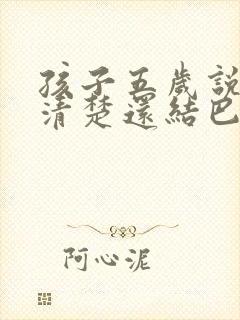 孩子五歲說
清楚還結巴
阿心泥